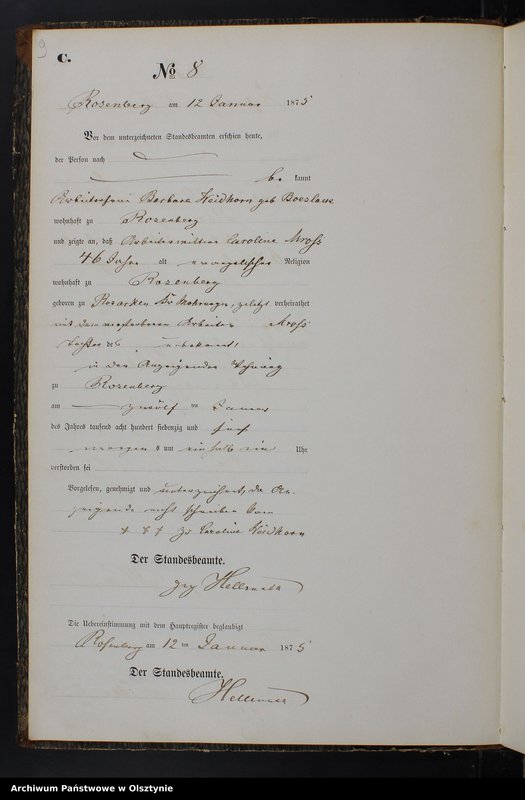 9
C.
No 8
Rosenberg am 12 Januar 1875
Vor dem unterzeichneten Standesbeamten erschien heute,
der Person nach
be kannt
Arbeiterfrau Barbara Heidhorn geb
wohnhaft zu Rosenberg
und zeigte an, daß Arbeiterwittwe Caroline Mroß
46 Jahre alt evangelischer Religion
wohnhaft zu Rosenberg
geboren zu Kr Mohrungen, zuletzt verheirathet
mit dem verstorbenen Arbeiter Mroß
Tochter des unbekannt,
in der Wohnung
zu Rosenberg
am zwölf ten Januar
des Jahres tausend acht hundert siebenzig und fünf
morgens um ein halb ein Uhr
verstorben sei
Vorgelesen, genehmigt und unterzeichnet, da An-
zeigende nicht schreiben kann
+ + + Heidhorn
Der Standesbeamte.
gez Hellwath
Die Uebereinstimmung mit dem Hauptregister beglaubigt
Rosenberg am 12 ten Januar 1875
Der Standesbeamte.
Hellwath
Archiwum Państwowe w Olsztynie